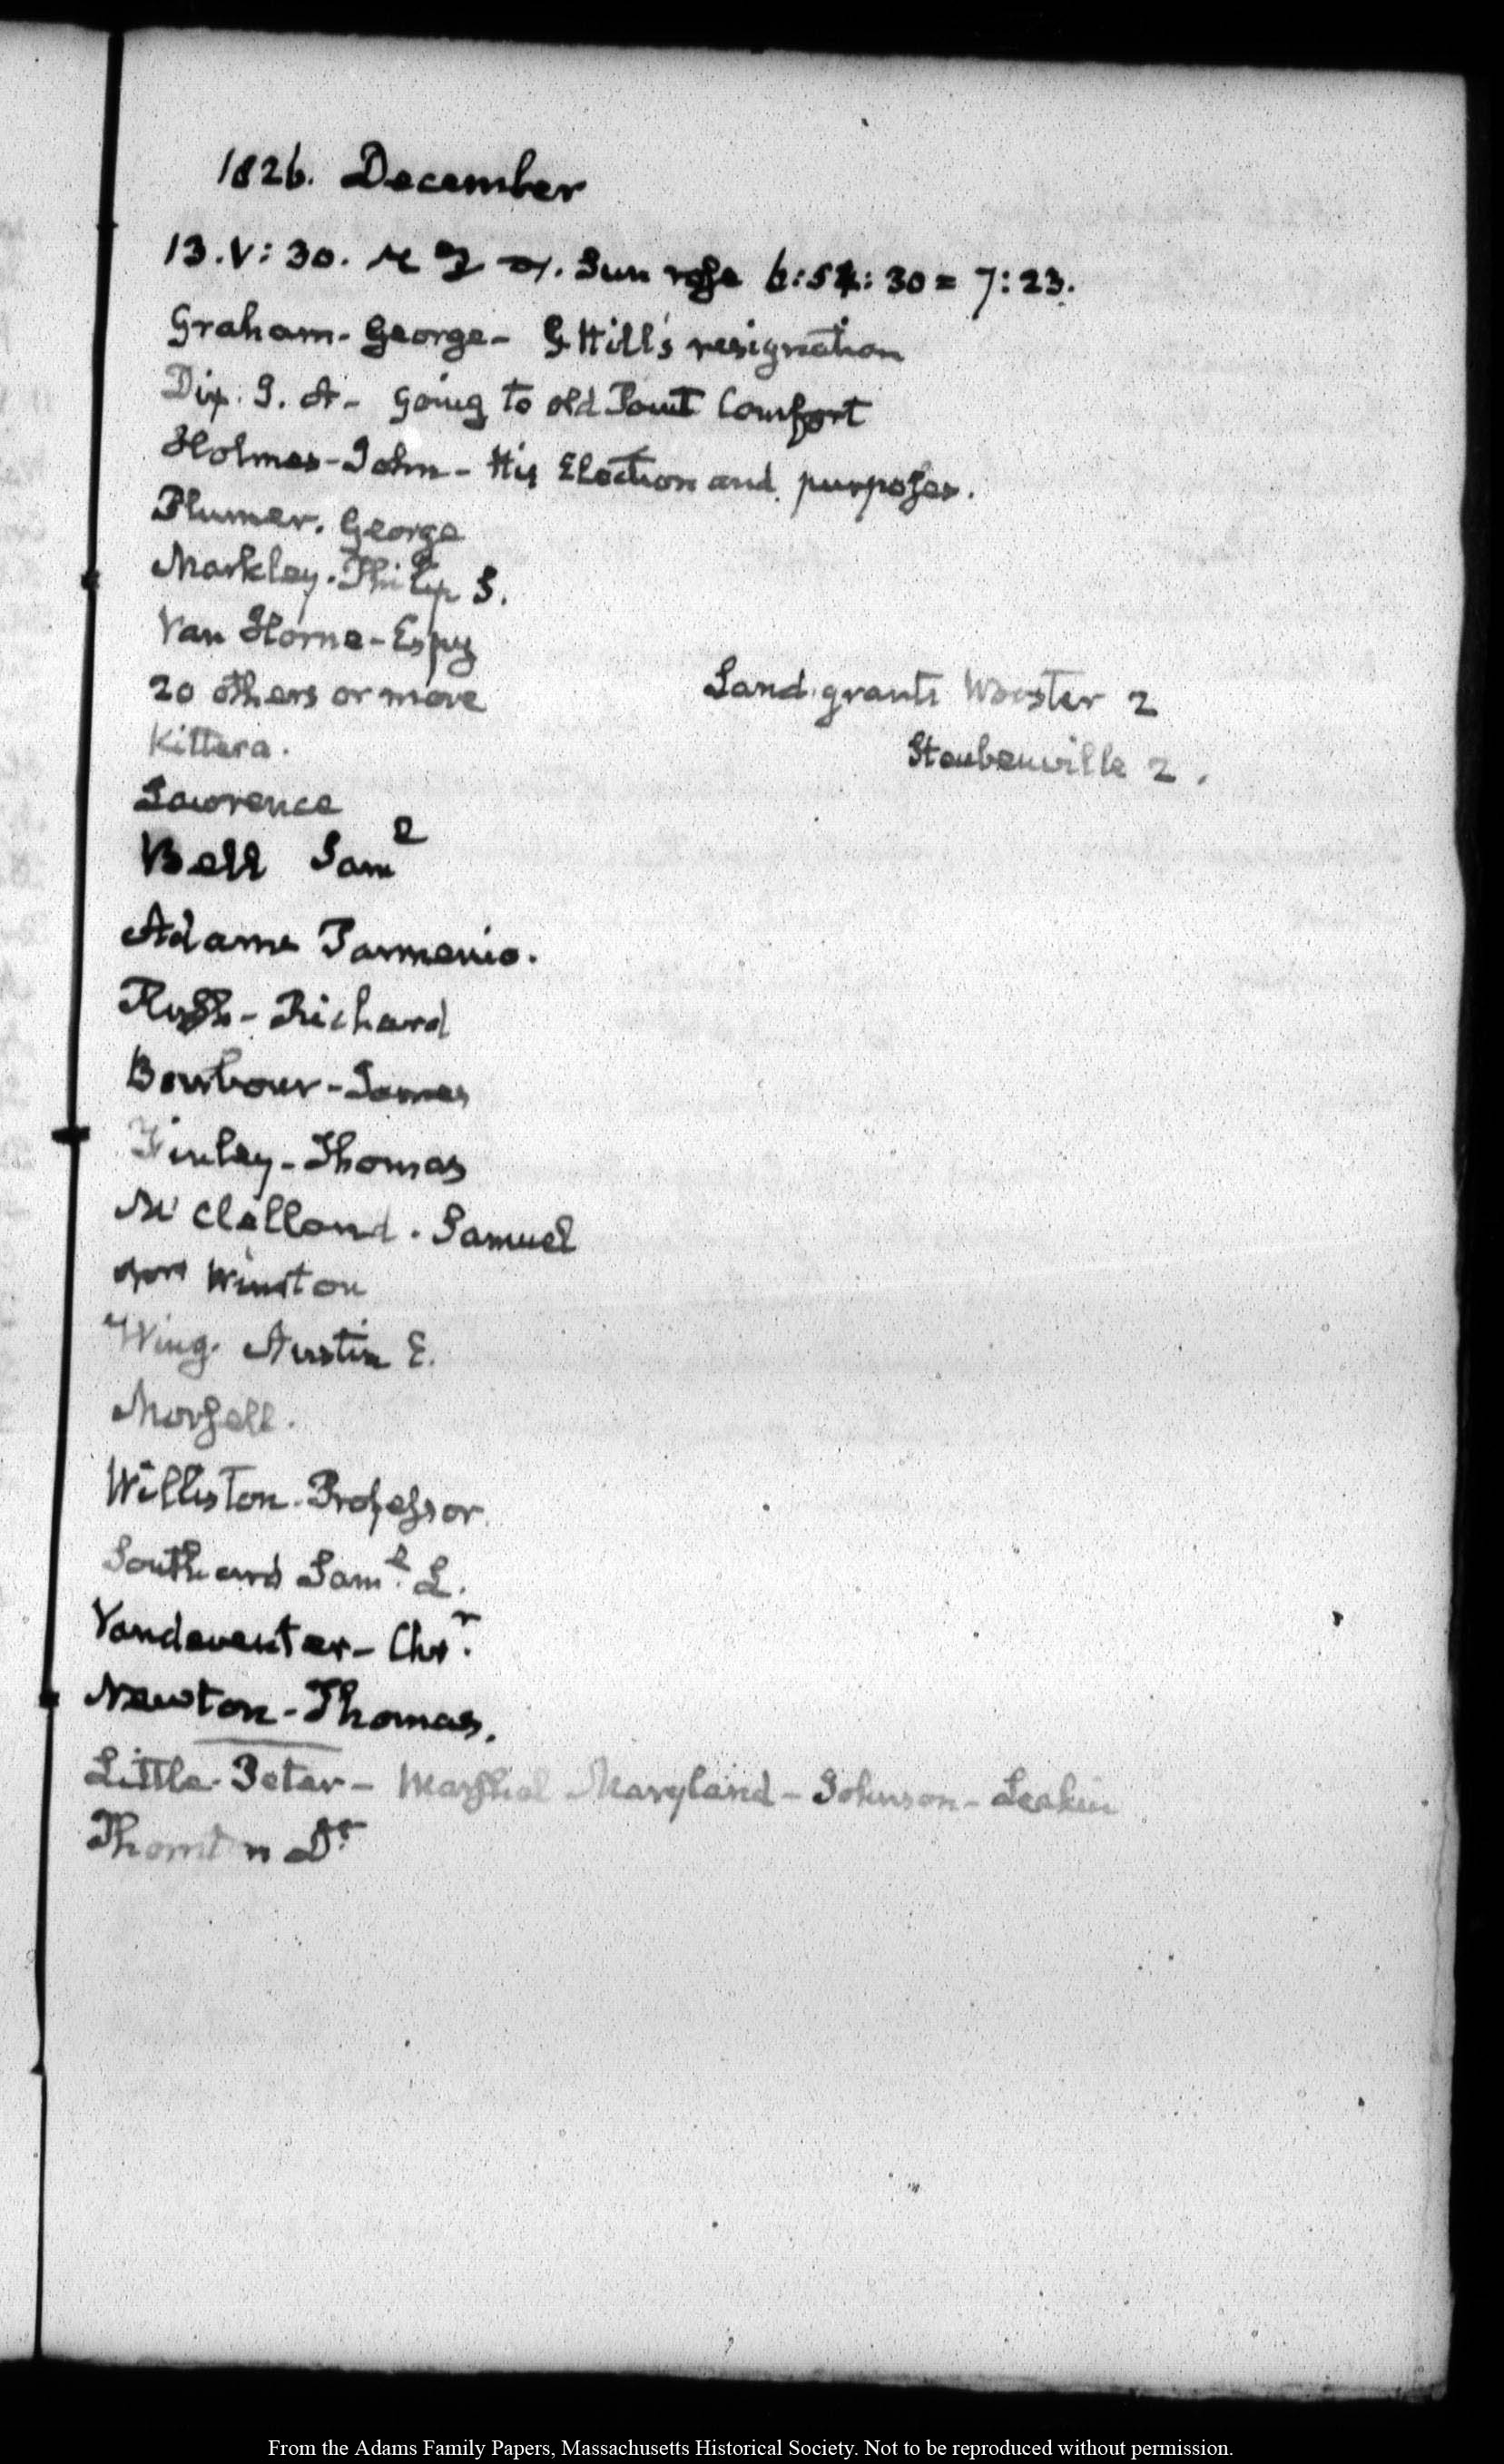 1826. December
13. V: 30. Sun rose 6:54:30 = 7:23.
Graham. George- G Hill's resignation
Dix. J. A- going to old Point Comfort
Holmes-John- His Election and purposes.
Plumer. George
Markley. Philip S.
Van Horne-Espy
20 others or more Land grants Wooster 2
Kittera. Steubenville 2.
Lawrence
Bell Saml
Adams Parmenio.
Rush-Richard
Barbour-James
Finley-Thomas
McClelland. Samuel
Winston
Wing. Austin E.
Morsell.
Williston. Professor
Southard Saml. L.
Vandeventer- Chr.
Newton-Thomas.
Little. Peter- Marshal Maryland- Johnson- Leakin
Thornton Dr.
From the Adams Family Papers, Massachusetts Historical Society. Not to be reproduced without permission.